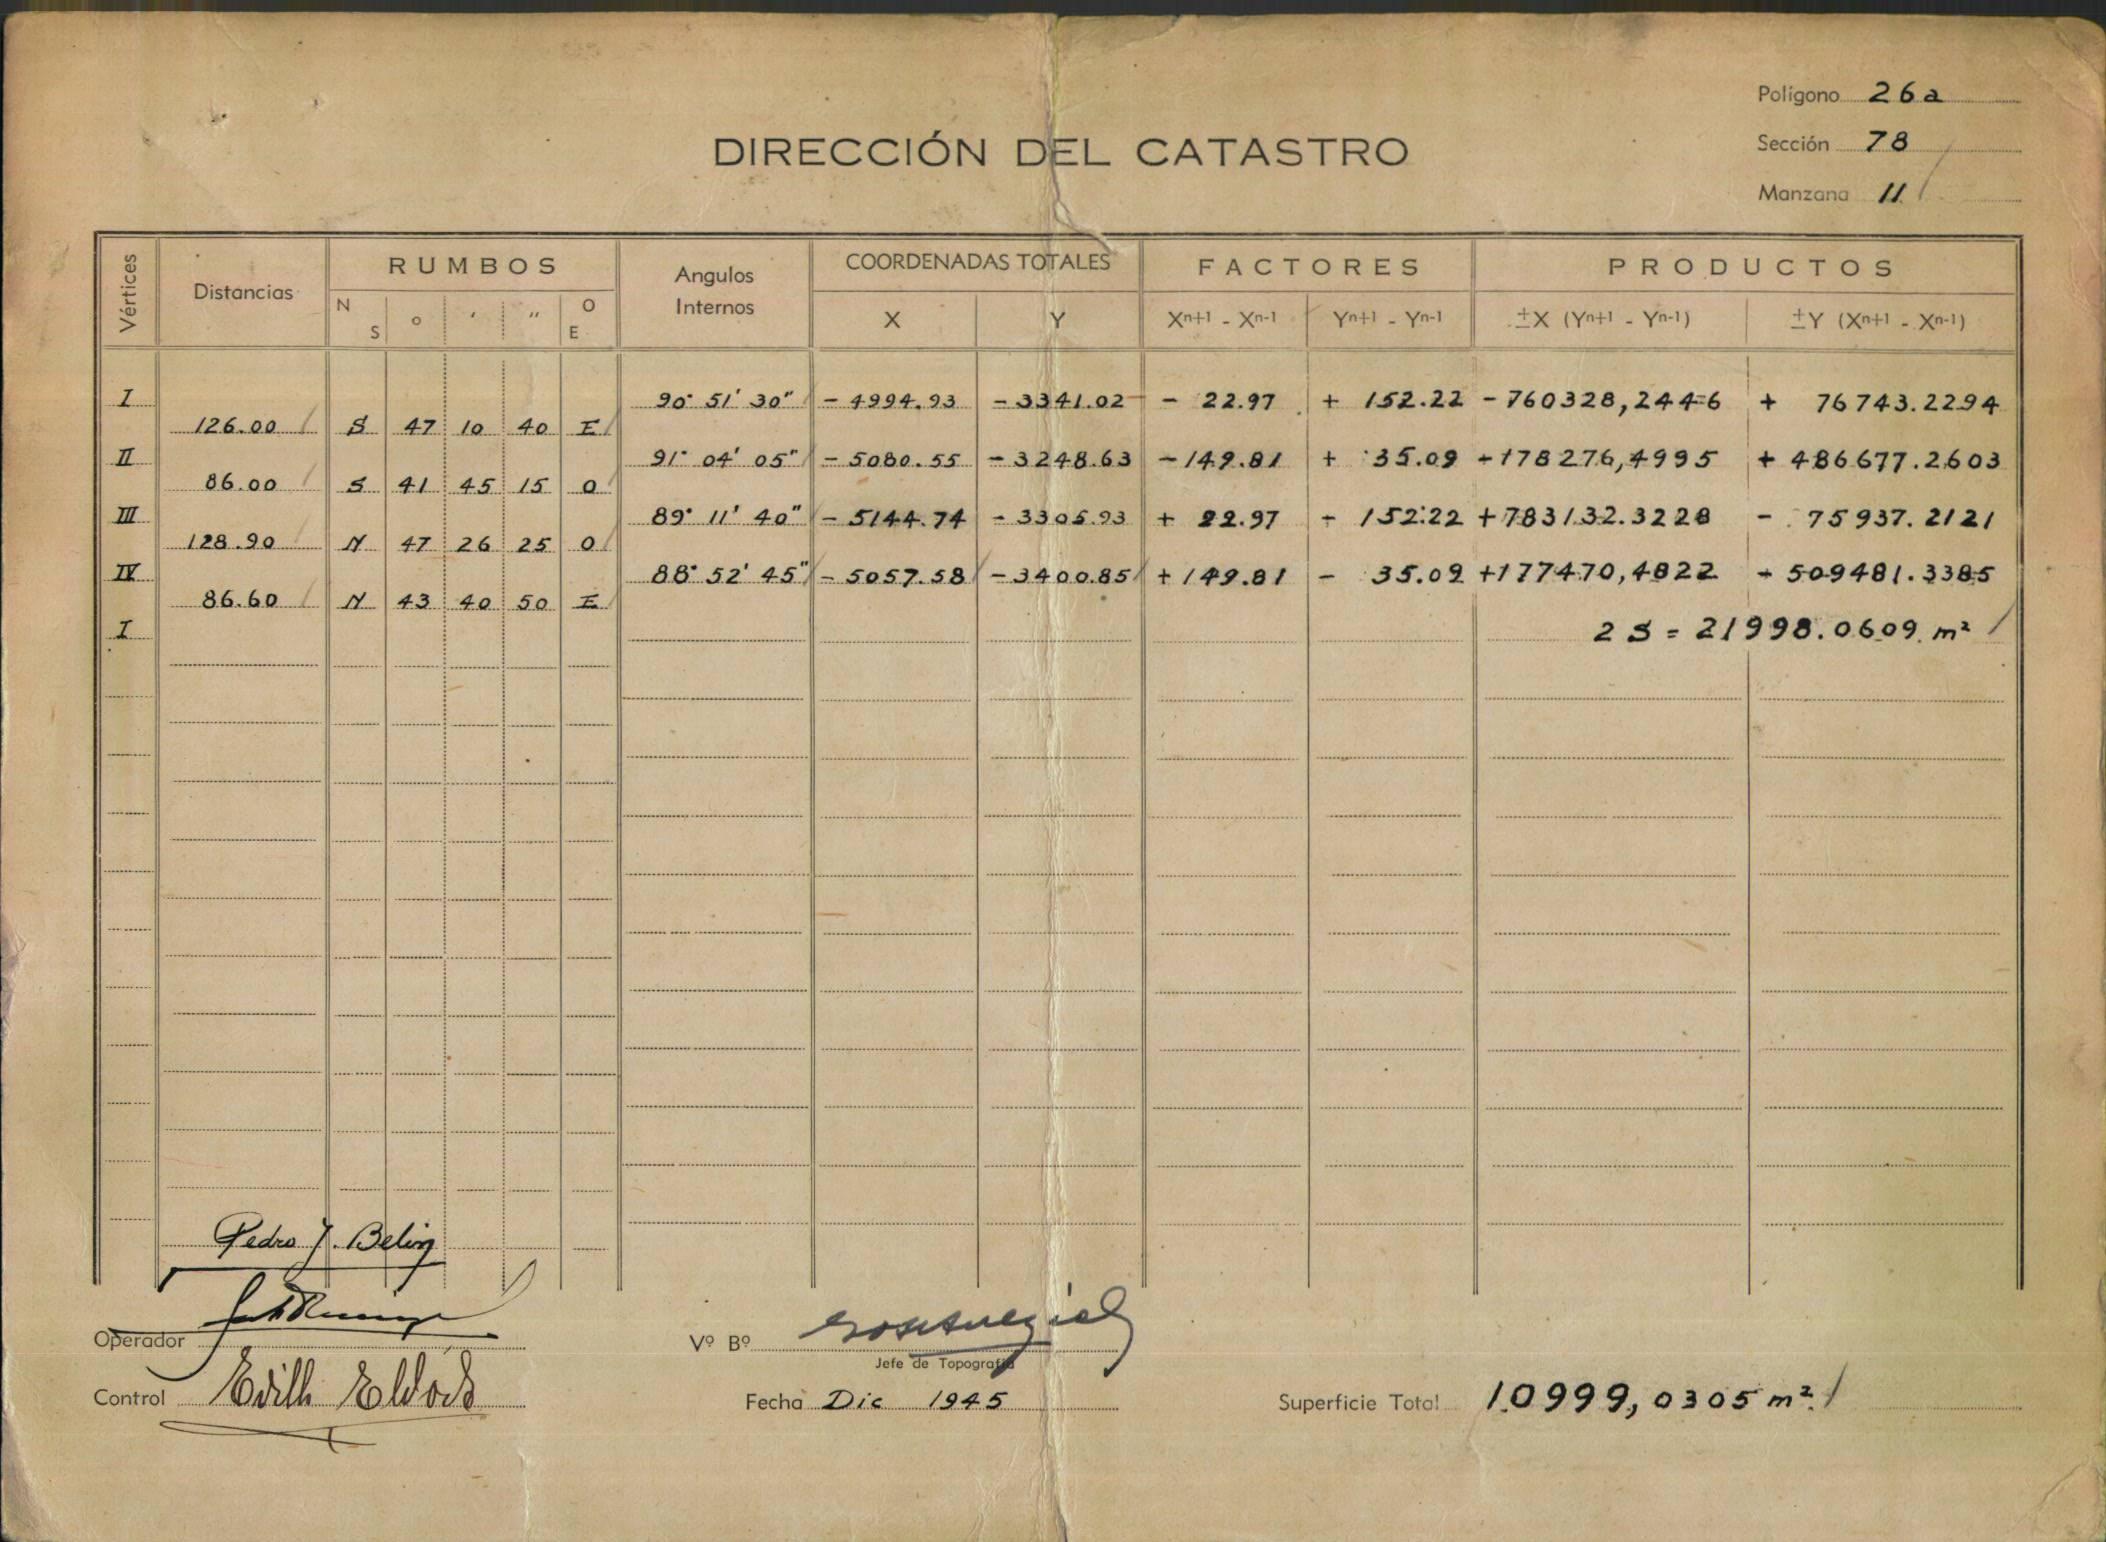 Polígono 26a
Sección 78
Manzana 11
DIRECCIÓN DEL CATASTRO
Vértices Distancias RUMBOS Angulos Internos COORDENADAS TOTALES FACTORES PRODUCTOS
N S ° ' " O E X Y Xn+1 - Xn-1 Yn+1 - Yn-1 ±X (Yn+1 - Yn-1) ±Y (Xn+1 - Xn-1)
I 90° 51' 30" - 4994.93 - 3341.02 - 22.97 + 152.22 - 760328,2446 + 76743.2294
126.00 S 47 10 40 E
II 91° 04' 05" - 5080.55 - 3248.63 - 149.81 + 35.09 - 178276,4995 + 486677.2603
86.00 S 41 45 15 O
III 89° 11' 40" - 5144.74 - 3305.93 + 22.97 - 152.22 + 783132.3228 - 75937.2121
128.90 N 47 26 25 O
IV 88° 52' 45" - 5057.58 - 3400.85 + 149.81 - 35.09 + 177470,4822 - 509481.3385
86.60 N 43 40 50 E
I 2 S = 21998.0609 m²
Pedro J. Belin
Operador
Vº Bº
Jefe de Topografía
Control Edith
Fecha Dic 1945
Superficie Total 10999,0305 m²